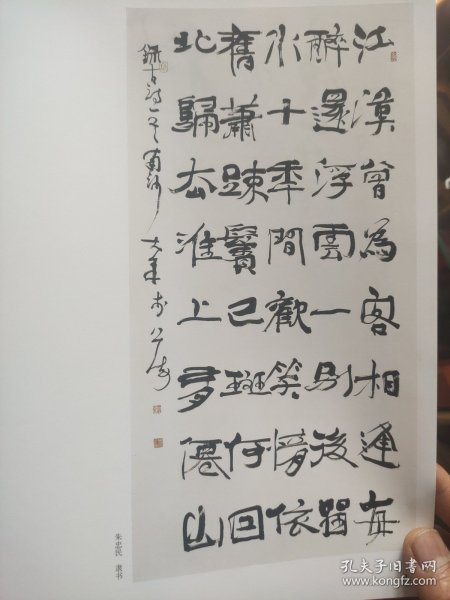 江漢曾為客相逢每
醉還浮雲一別後留
水十年間歡笑情依
舊蕭疎鬢已斑何回
北歸去淮上山
錄古詩一首
朱忠民 隶书
孔夫子旧书网
www.kongfz.com